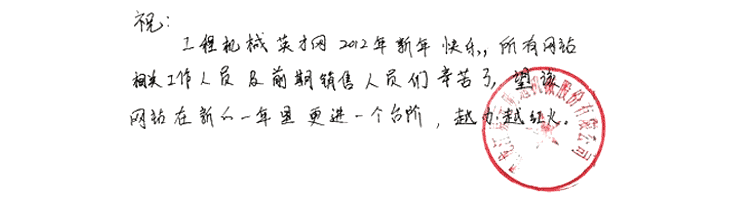 祝：
工程机械英才网2012年新年快乐，所有网站
相关工作人员及前期销售人员们辛苦了，望该
网站在新的一年里更进一个台阶，越办越红火。
机械股份有限公司